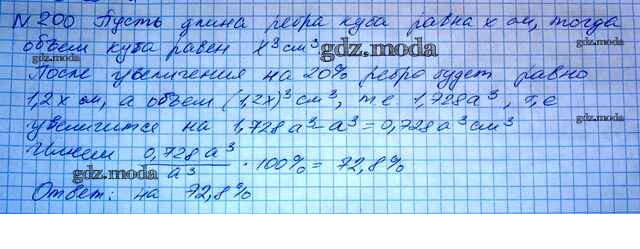 №200 Пусть длина ребра куба равна х см, тогда
объем куба равен х³см³.
gdz.moda
gdz.moda
После увеличения на 20% ребро будет равно
gdz.moda
1,2х см, а объем (1,2х)³см³, т.е 1,728а³, т.е
увеличится на 1,728а³-а³=0,728а³см³
gdz.moda
Имеем 0,728а³/а³ · 100%=72,8%
gdz.moda
gdz.moda
Ответ: на 72,8%